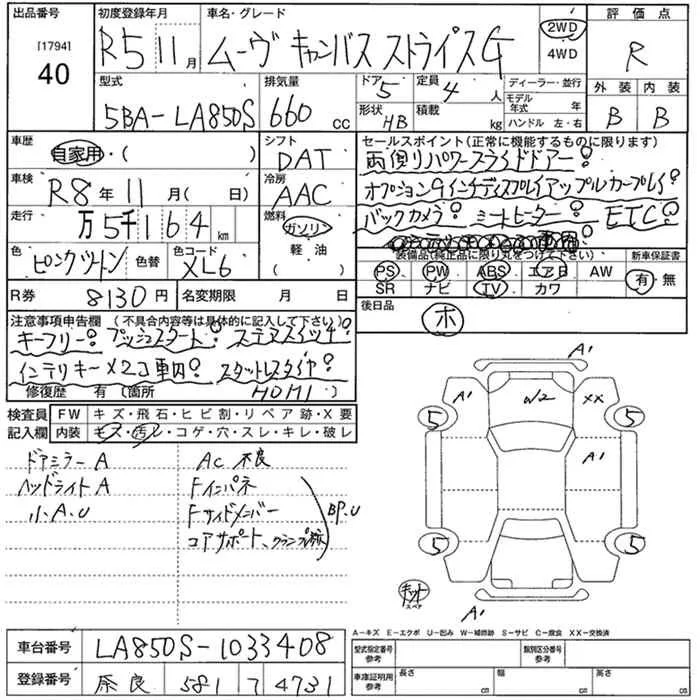 出品番号 初度登録年月 車名・グレード 評価点
[1794]
40
R5 11月
ムーヴ キャンバス ストライプスG
2WD
4WD
R
型式 排気量 ドア 5 定員 4人 ディーラー・並行 外装 内装
5BA-LA850S 660cc
形状 HB 積載 kg モデル年式 年
ハンドル 左・右
B B
車歴 シフト セールスポイント(正常に機能するものに限ります)
自家用・( ) DAT
両側パワースライドドアー
車検 冷房
R8年11月( 日) AAC
オプション9インチディスプレイアップルカープレイ
走行 燃料
万5千164km ガソリン・
軽・油( )
バックカメラ シートヒーター ETC
色 色替 色コード
ピンクツートン XL6
装備品(純正品に限り丸をつけて下さい) 新車保証書
PS PW ABS エアB AW 有・無
SR ナビ TV カワ
R券 8130円 名変期限 月 日
後日品 ホ
注意事項申告欄 (不具合内容等は具体的に記入して下さい)
キーフリー プッシュスタート ステアスイッチ
インテリキー×2コ車内 スタットレスタイヤ
修復歴 有 〔箇所 〕
検査員記入欄 FW キズ・飛石・ヒビ割・リペア跡・X要
内装 キズ・汚レ・コゲ・穴・スレ・キレ・破レ
ドアミラーA AC不良
ヘッドライトA Fインパネ
小A.U Fサイドメンバー BP.U
コアサポート、
A1
A1 W2 XX
5 5
A1
5 5
キット
スペア
A1
A-キズ E-エクボ U-凹み W-補修跡 S-サビ C-腐食 XX-交換済
車台番号 LA850S-1033408
型式指定番号 参考 類別区分番号 参考
登録番号 奈良 581 ワ 4731
車庫証明用 参考 長さ cm 幅 cm 高さ cm